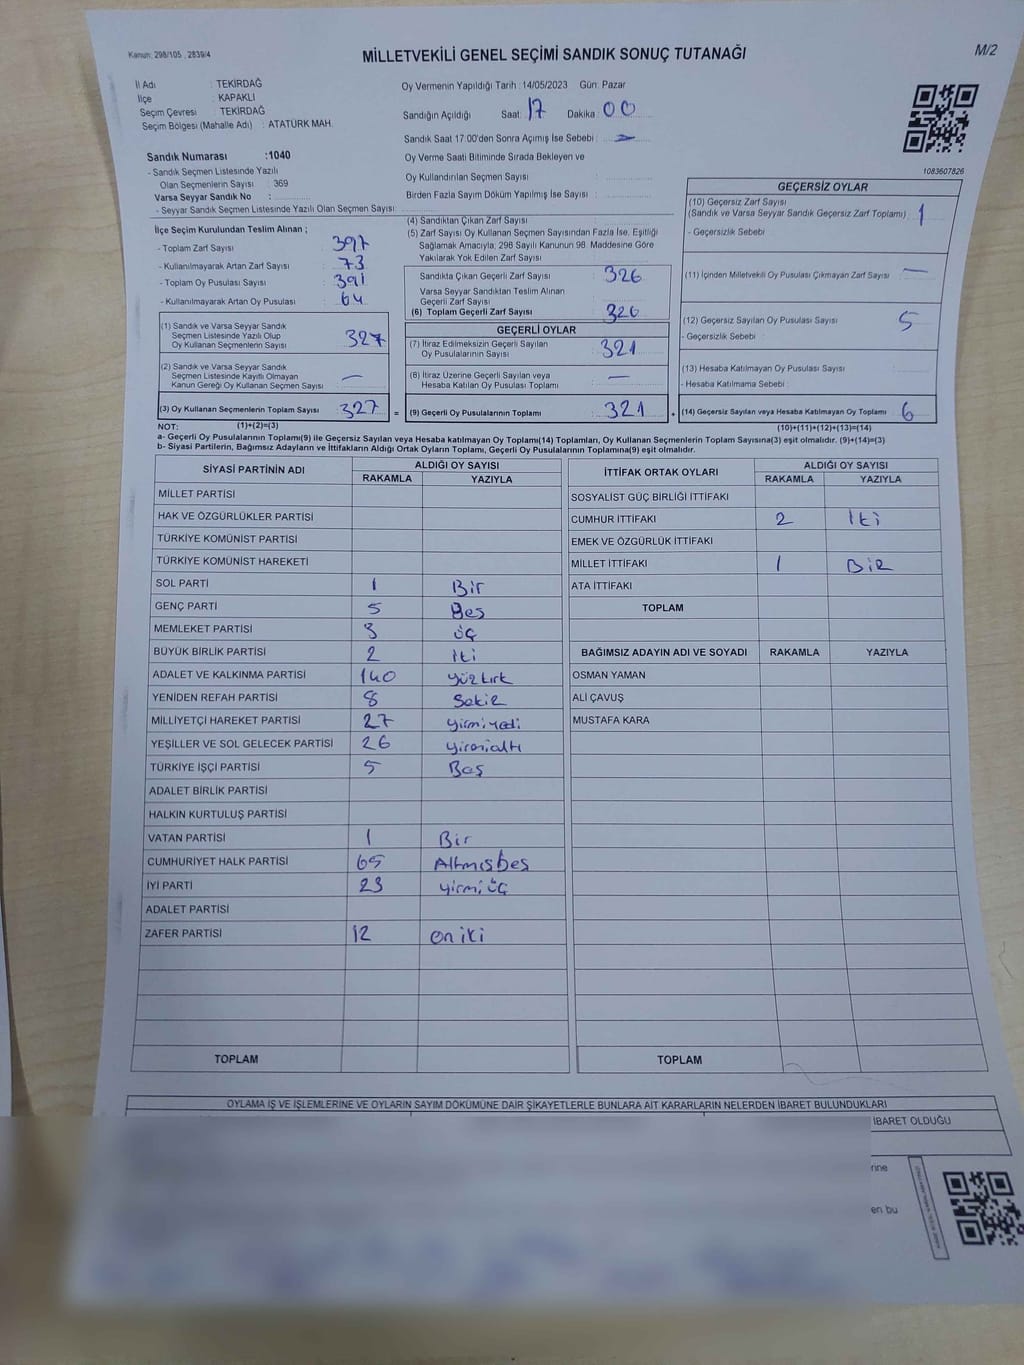 Kanun: 298/105 , 2839/4
MİLLETVEKİLİ GENEL SEÇİMİ SANDIK SONUÇ TUTANAĞI
M/2
İl Adı : TEKİRDAĞ
İlçe : KAPAKLI
Seçim Çevresi : TEKİRDAĞ
Seçim Bölgesi (Mahalle Adı) : ATATÜRK MAH.
Oy Vermenin Yapıldığı Tarih : 14/05/2023 Gün: Pazar
Sandığın Açıldığı Saat: 17 Dakika: 00
Sandık Saat 17:00'den Sonra Açımış İse Sebebi :
Oy Verme Saati Bitiminde Sırada Bekleyen ve
Oy Kullandırılan Seçmen Sayısı :
Birden Fazla Sayım Döküm Yapılmış İse Sayısı :
1083607826
Sandık Numarası :1040
- Sandık Seçmen Listesinde Yazılı
Olan Seçmenlerin Sayısı : 369
Varsa Seyyar Sandık No :
- Seyyar Sandık Seçmen Listesinde Yazılı Olan Seçmen Sayısı:
İlçe Seçim Kurulundan Teslim Alınan ;
- Toplam Zarf Sayısı : 397
- Kullanılmayarak Artan Zarf Sayısı : 73
- Toplam Oy Pusulası Sayısı : 391
- Kullanılmayarak Artan Oy Pusulası : 64
(1) Sandık ve Varsa Seyyar Sandık
Seçmen Listesinde Yazılı Olup
Oy Kullanan Seçmenlerin Sayısı : 327
(2) Sandık ve Varsa Seyyar Sandık
Seçmen Listesinde Kayıtlı Olmayan
Kanun Gereği Oy Kullanan Seçmen Sayısı : —
(3) Oy Kullanan Seçmenlerin Toplam Sayısı : 327
(4) Sandıktan Çıkan Zarf Sayısı :
(5) Zarf Sayısı Oy Kullanan Seçmen Sayısından Fazla İse, Eşitliği
Sağlamak Amacıyla, 298 Sayılı Kanunun 98. Maddesine Göre
Yakılarak Yok Edilen Zarf Sayısı :
Sandıkta Çıkan Geçerli Zarf Sayısı : 326
Varsa Seyyar Sandıktan Teslim Alınan
Geçerli Zarf Sayısı :
(6) Toplam Geçerli Zarf Sayısı : 326
GEÇERLİ OYLAR
(7) İtiraz Edilmeksizin Geçerli Sayılan
Oy Pusulalarının Sayısı : 321
(8) İtiraz Üzerine Geçerli Sayılan veya
Hesaba Katılan Oy Pusulası Toplamı : —
= (9) Geçerli Oy Pusulalarının Toplamı : 321
GEÇERSİZ OYLAR
(10) Geçersiz Zarf Sayısı
(Sandık ve Varsa Seyyar Sandık Geçersiz Zarf Toplamı) : 1
- Geçersizlik Sebebi :
(11) İçinden Milletvekili Oy Pusulası Çıkmayan Zarf Sayısı : —
(12) Geçersiz Sayılan Oy Pusulası Sayısı : 5
- Geçersizlik Sebebi :
(13) Hesaba Katılmayan Oy Pusulası Sayısı :
- Hesaba Katılmama Sebebi :
+ (14) Geçersiz Sayılan veya Hesaba Katılmayan Oy Toplamı : 6
NOT: (1)+(2)=(3) (10)+(11)+(12)+(13)=(14)
a- Geçerli Oy Pusulalarının Toplamı(9) ile Geçersiz Sayılan veya Hesaba katılmayan Oy Toplamı(14) Toplamları, Oy Kullanan Seçmenlerin Toplam Sayısına(3) eşit olmalıdır. (9)+(14)=(3)
b- Siyasi Partilerin, Bağımsız Adayların ve İttifakların Aldığı Ortak Oyların Toplamı, Geçerli Oy Pusulalarının Toplamına(9) eşit olmalıdır.
SİYASİ PARTİNİN ADI ALDIĞI OY SAYISI
RAKAMLA YAZIYLA
MİLLET PARTİSİ
HAK VE ÖZGÜRLÜKLER PARTİSİ
TÜRKİYE KOMÜNİST PARTİSİ
TÜRKİYE KOMÜNİST HAREKETİ
SOL PARTİ 1 Bir
GENÇ PARTİ 5 Beş
MEMLEKET PARTİSİ 3 üç
BÜYÜK BİRLİK PARTİSİ 2 iki
ADALET VE KALKINMA PARTİSİ 140 yüzkırk
YENİDEN REFAH PARTİSİ 8 Sekiz
MİLLİYETÇİ HAREKET PARTİSİ 27 yirmiyedi
YEŞİLLER VE SOL GELECEK PARTİSİ 26 yirmialtı
TÜRKİYE İŞÇİ PARTİSİ 5 Beş
ADALET BİRLİK PARTİSİ
HALKIN KURTULUŞ PARTİSİ
VATAN PARTİSİ 1 Bir
CUMHURİYET HALK PARTİSİ 65 Altmışbeş
İYİ PARTİ 23 yirmiüç
ADALET PARTİSİ
ZAFER PARTİSİ 12 on iki
TOPLAM
İTTİFAK ORTAK OYLARI ALDIĞI OY SAYISI
RAKAMLA YAZIYLA
SOSYALİST GÜÇ BİRLİĞİ İTTİFAKI
CUMHUR İTTİFAKI 2 İki
EMEK VE ÖZGÜRLÜK İTTİFAKI
MİLLET İTTİFAKI 1 BİR
ATA İTTİFAKI
TOPLAM
BAĞIMSIZ ADAYIN ADI VE SOYADI RAKAMLA YAZIYLA
OSMAN YAMAN
ALİ ÇAVUŞ
MUSTAFA KARA
TOPLAM
OYLAMA İŞ VE İŞLEMLERİNE VE OYLARIN SAYIM DÖKÜMÜNE DAİR ŞİKAYETLERLE BUNLARA AİT KARARLARIN NELERDEN İBARET BULUNDUKLARI
İBARET OLDUĞU
rine
en bu